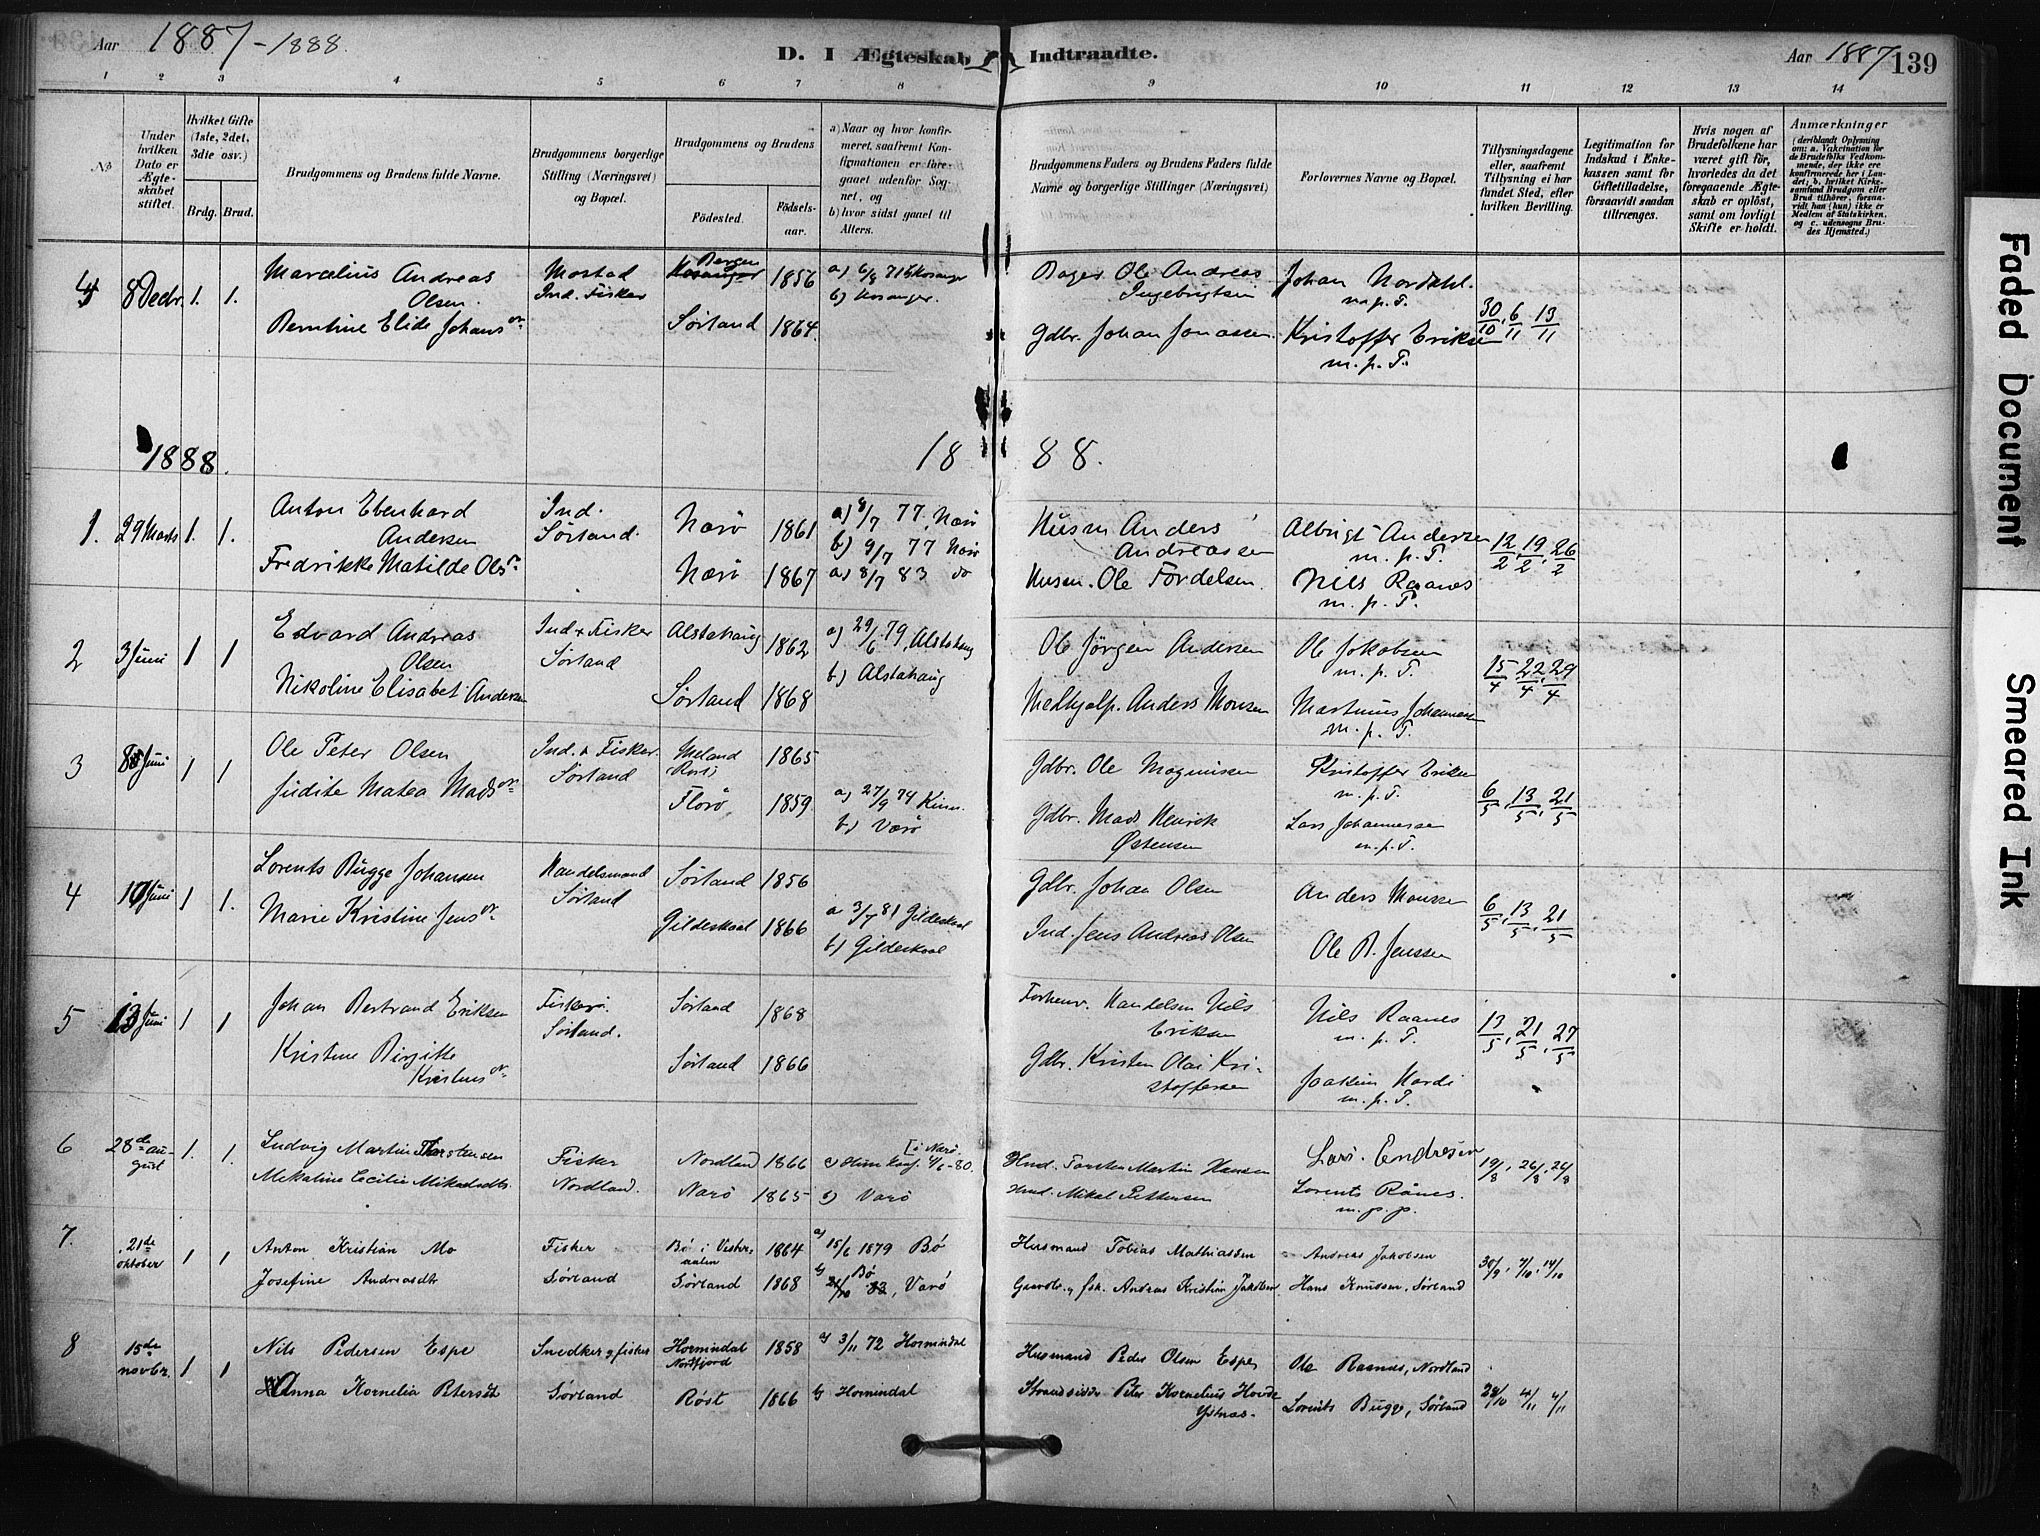 Aar 1887-1888.
D. I Ægteskab Indtraadte.
Aar 1887
139
1 2 3 4 5 6 7 8 9 10 11 12 13 14
No
Under hvilken Dato er Ægteskabet stiftet.
Hvilket Gifte (1ste, 2det, 3die osv.)
Brdg. Brud.
Brudgommens og Brudens fulde Navne.
Brudgommens borgerlige Stilling (Næringsvei) og Bopæl.
Brudgommens og Brudens
Fødested.
Fødselsaar.
a) Naar og hvor konfirmeret, saafremt Konfirmationen er foregaaet udenfor Sognet, og
b) hvor sidst gaaet til Alters.
Brudgommens Faders og Brudens Faders fulde Navne og borgerlige Stillinger (Næringsvei)
Forlovernes Navne og Bopæl.
Tillysningsdagene eller, saafremt Tillysning ei har fundet Sted, efter hvilken Bevilling.
Legitimation for Indskud i Enkekassen samt for Giftetilladelse, forsaavidt saadan tiltrænges.
Hvis nogen af Brudefolkene har været gift før, hvorledes da det foregaaende Ægteskab er opløst, samt om lovligt Skifte er holdt.
Anmærkninger
(deriblandt Oplysning om: a. Vakcination for de Brudefolks Vedkommende, der ikke ere konfirmerede her i Landet; b. hvilket Kirkesamfund Brudgom eller Brud tilhører, forsaavidt han (hun) ikke er Medlem af Statskirken, og c. udensogns Brudes Hjemsted.)
4 8 Decbr. 1. 1. Marcelius Andreas Mostad Bergen 1856 a) 6/8 71 Kosanger Bager Ole Andreas Johan Nordahl.
Olsen. Ind. Fisker b) Kosanger. Ingebrigtsen m.p.P.
Berntine Elide Johansdtr Sørland 1864. Gdbr. Johan Jonassen. Kristoffer Eriksen 30/10, 6/11 13/11
m. p. P.
1888. 1888.
1. 29 Marts 1. 1. Anton Eberhard Ind. Nærø 1861 a) 8/7 77, Nærø Husm Anders Albrigt Andersen 12/2, 19/2, 26/2
Andersen Sørland. b) 9/7 77 Nærø Andreassen m. p. P.
Fredrikke Matilde Olsdr Nærø 1867 a) 8/7 83 do Husm. Ole Fordelsen. Nils Raanes
m. p. P.
2 3 Juni 1 1 Edvard Andreas Ind & Fisker Alstahaug 1862 a) 29/6 79, Alstahaug Ole Jørgen Andersen Ole Jakobsen 15/4 22/4 29/4
Olsen Sørland b) Alstahaug m. p. P.
Nikoline Elisabet Andersen Sørland 1868 Medhjælp. Anders Monsen Martinus Johannesen
m. p. P.
3 8 Juni 1 1 Ole Peter Olsen Ind. & Fisker. Meland 1865 Gdbr. Ole Magnussen Kristoffer Eriksen 6/5, 13/5, 21/5
Sørland m. p. P.
Judite Matea Madsdr Florø 1859. a) 27/9 74 Kinn. Gdbr. Mads Henrik Lars Johannessen
b) Værø Østensen m.p.P.
4 10 Juni 1 1. Lorents Bugge Johansen Handelsmand Sørland 1856 Gdbr. Johan Olsen Anders Monsen 6/5, 13/5, 21/5
Sørland
Marie Kristine Jensdr Gildeskaal 1866 a 3/7 81 Gildeskaal Ind. Jens Andreas Olsen Ole B. Jenssen
b) Gildeskaal
5 13 Juni 1 1 Johan Bertrand Eriksen Sørland 1868 Forhenv. Handelsm Nils Nils Raanes 13/5, 21/5, 27/5
Sørland. Eriksen m. p. P.
Kristine Birgitte Sørland 1866 Gdbr. Kristen Olai Kri- Joakim Hardi
Kristensdr stoffersen m. p. P.
6 28de au- 1. 1. Ludvig Martin Thorstensen Fisker Nordland 1866 [i Nærø. Lars Endresen 19/8, 26/8, 26/8
gust Hmd. Torsten Martin Hansen
Mekaline Cecilie Mikalsdtr. Nordland. Nærø 1865 b) Værø Hmd. Mikal Pettersen Lorents Rånes.
m. p. p.
7. 21de 1 1 Anton Kristian Mo Fisker Bø i Vester- 1864 a) 15/6 1879 Bø Husmand Tobias Mathiassen Andreas Jakobsen 30/9, 7/10, 14/10
oktober aalen b) Bø
Josefine Andreasdtr Sørland Sørland 1868 Værø Gaardbr. og fisk. Andreas Kristian Jakobsen Hans Knutssen, Sørland
8 15de 1 1 Nils Pedersen Espe Snedker og fisker Hornindal 1858 a) 3/11 72 Hornindal Husmand Peder Olsen Espe Ole Raanes, Nordland
novbr. Nordfjord
Anna Kornelia Petersdtr Sørland Røst 1866 b) Hornindal Strandsidder Peter Kornelius Hovde Lorents Bugge, Sørland 28/10 4/11 4/11
Ystnæs.
Faded Document
Smeared Ink